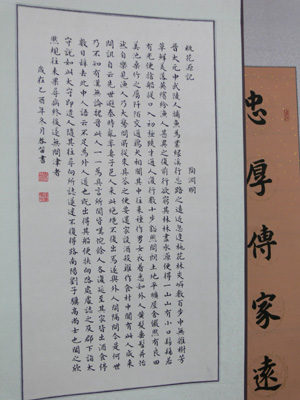 忠厚傳家遠
桃花源記
陶渊明
晉太元中武陵人捕魚為業緣溪行忘路之遠近忽逢桃花林夾岸數百步中無雜樹芳
草鮮美落英繽紛漁人甚異之復前行欲窮其林林盡水源便得一山山有小口髣髴若
有光便捨船從口入初極狹才通人復行數十步豁然開朗土地平曠屋舍儼然有良田
美池桑竹之屬阡陌交通雞犬相聞其中往來種作男女衣著悉如外人黃髮垂髫并怡
然自樂見漁人乃大驚問所從來具答之便要還家設酒殺雞作食村中聞有此人咸來
問訊自云先世避秦時亂率妻子邑人來此絕境不復出焉遂與外人間隔問今是何世
乃不知有漢無論魏晉此人一一為具言所聞皆嘆惋餘人各復延至其家皆出酒食停
數日辭去此中人語云不足為外人道也既出得其船便扶向路處處誌之及郡下詣太
守說如此太守即遣人隨其往尋向所誌遂迷不復得路南陽劉子驥高尚士也聞之欣
然規往未果尋病終後遂無問津者
歲在乙酉年 月 書